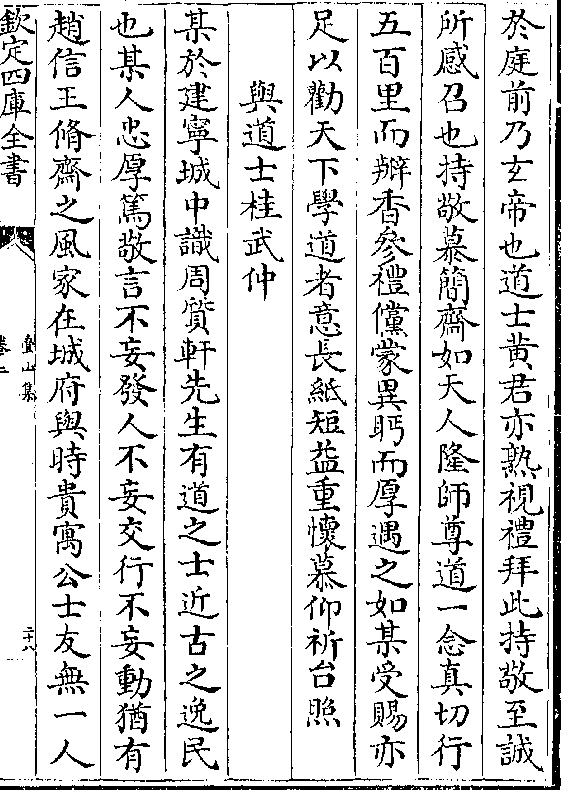 於庭前乃玄帝也道士黄君亦熟視禮拜此持敬至誠
所感召也持敬慕簡齋如天人隆師尊道一念真切行
五百里而辦香參禮儻蒙異眄而厚遇之如某受賜亦
足以勸天下學道者意長紙短益重懷慕仰祈台照
與道士桂武仲
某於建寧城中識周質軒先生有道之士近古之逸民
也某人忠厚篤敬言不妄發人不妄交行不妄動猶有
趙信王脩齋之風家在城府與時貴寓公士友無一人
欽定四庫全書
疊山集
卷二
二十八